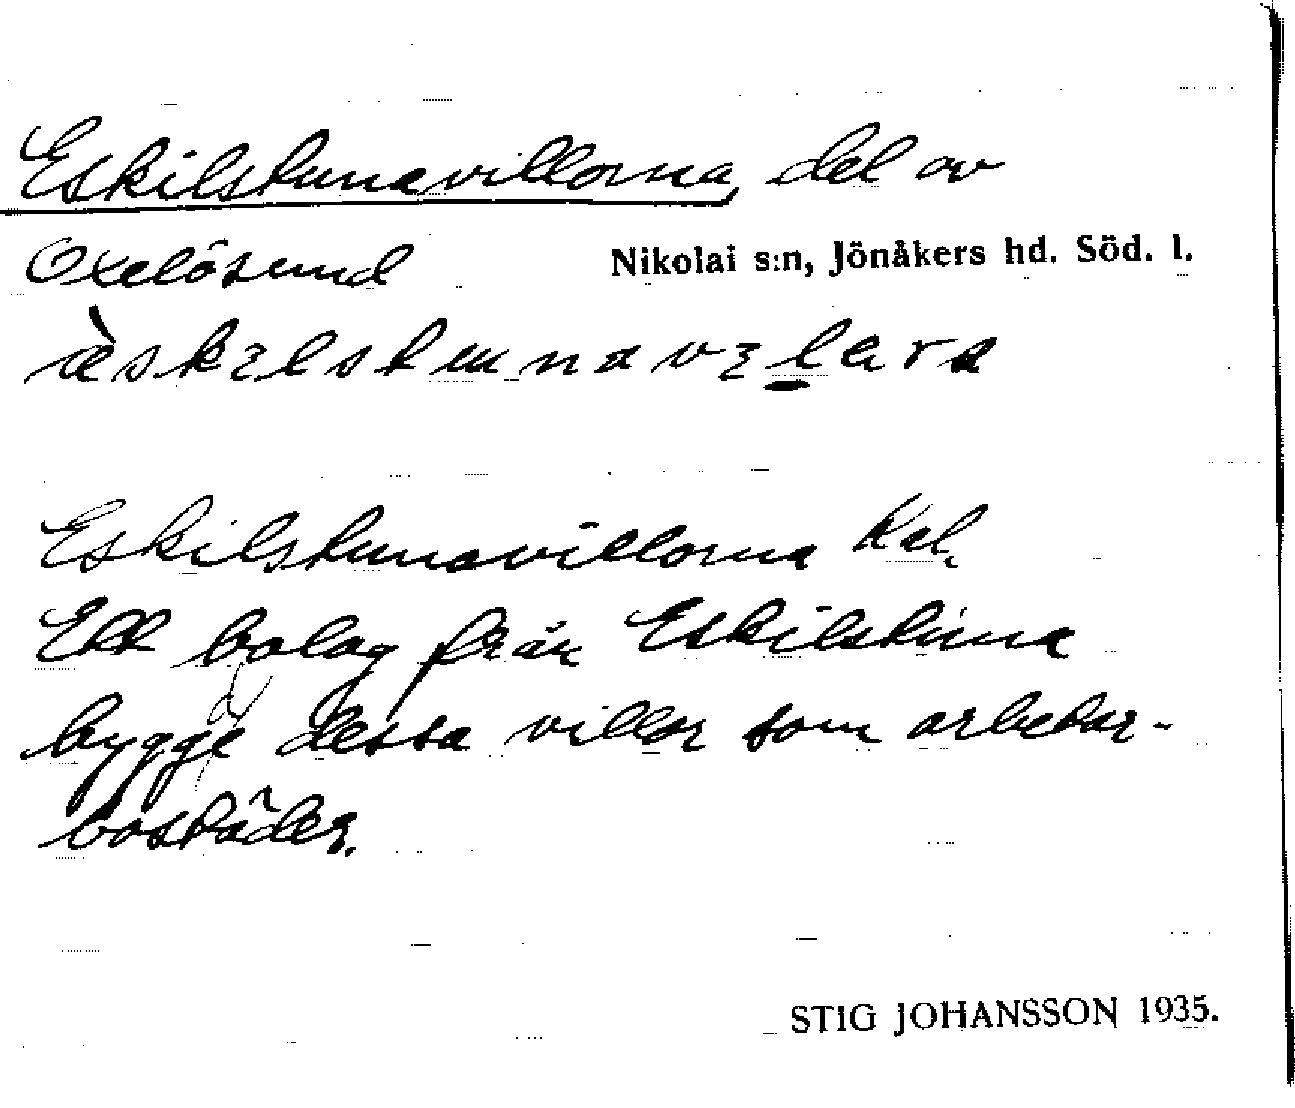 Eskilstunavillorna, del av
Oxelösund Nikolai s:n, Jönåkers hd. Söd. l.
Eskilstunavillorna Kal.
Ett bolag från Eskilstuna
bygge dessa villor som arbetar-
bostäder.
STIG JOHANSSON 1935.